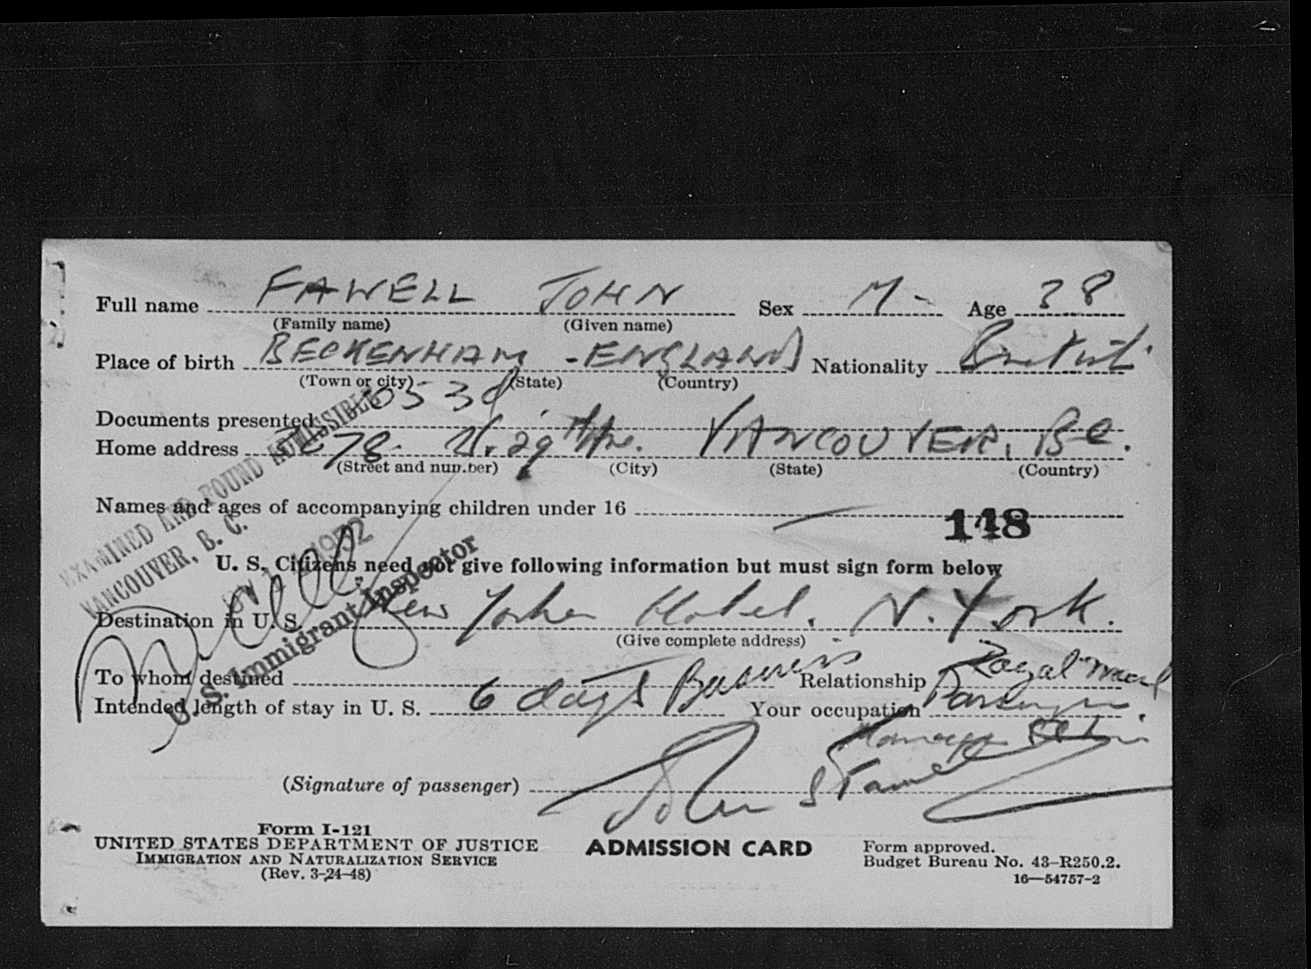 Full name FAWELL JOHN Sex M- Age 38
(Family name) (Given name)
Place of birth BECKENHAM - ENGLAND Nationality British
(Town or city) (State) (Country)
Documents presented
Home address W. 29th Ave. VANCOUVER. B.C.
(Street and number) (City) (State) (Country)
Names and ages of accompanying children under 16
148
EXAMINED AND FOUND ADMISSIBLE
VANCOUVER, B. C.
1952
U. S. Immigrant Inspector
U. S. Citizens need not give following information but must sign form below
Destination in U. S. New Yorker Hotel. N. York.
(Give complete address)
To whom destined Relationship
Intended length of stay in U. S. 6 days Business Your occupation Royal Mail
(Signature of passenger) John Fawell
Form I-121
UNITED STATES DEPARTMENT OF JUSTICE
IMMIGRATION AND NATURALIZATION SERVICE
(Rev. 3-24-48)
ADMISSION CARD
Form approved.
Budget Bureau No. 43-R250.2.
16—54757-2